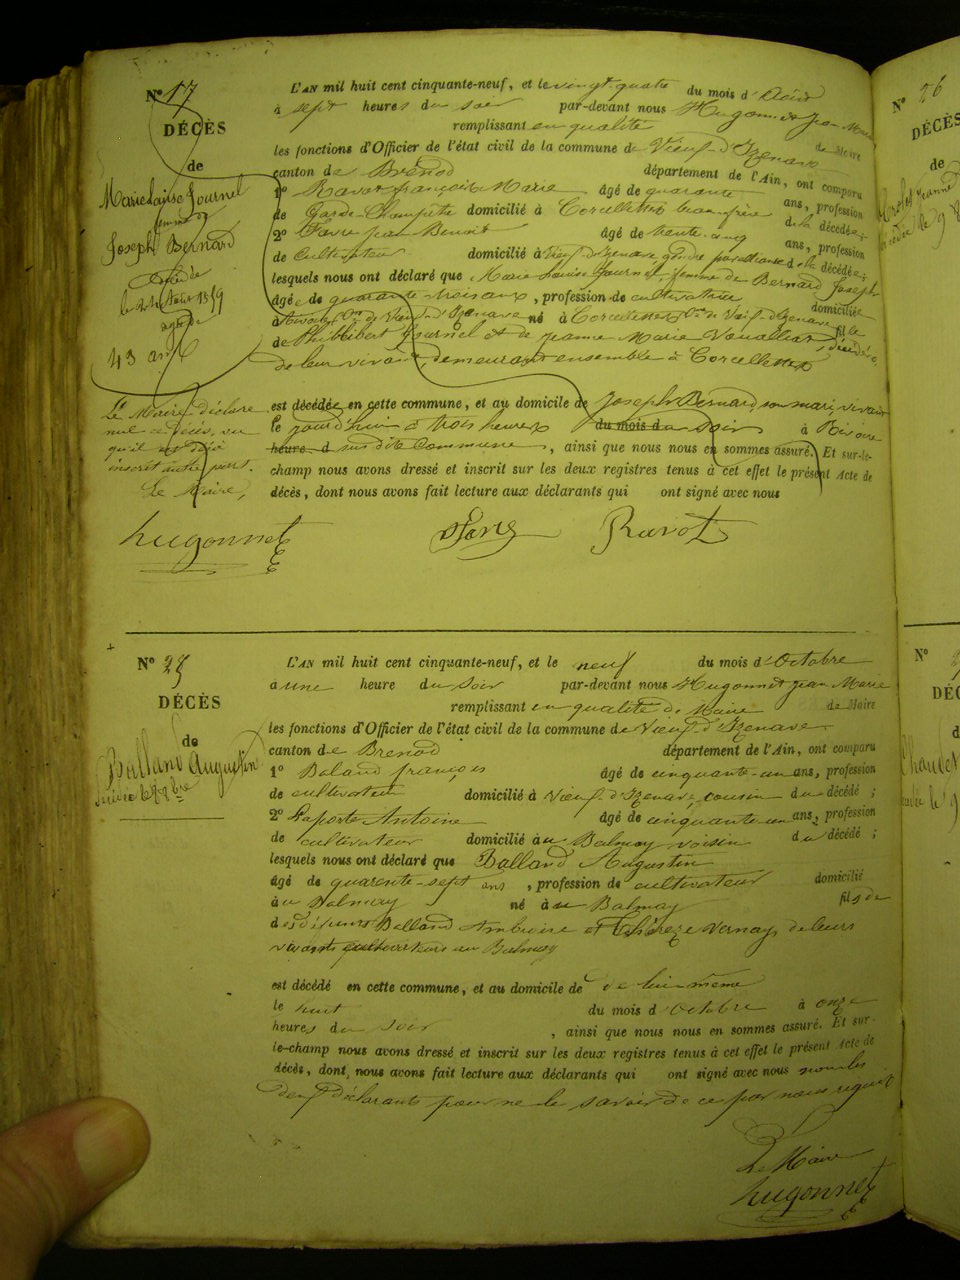 N° 17
DÉCÈS
de
Marie Louise Journel
femme
Joseph Bernard
décédée
le 24 Août 1859
âgée de
43 ans
L'AN mil huit cent cinquante-neuf, et le vingt-quatre du mois d'Août
à sept heures du soir par-devant nous Hugonnet Jean Marie
remplissant en qualité de Maire
les fonctions d'Officier de l'état civil de la commune de Vieu-d'Izenave
canton de Brénod département de l'Ain, ont comparu
1° Ravot françois Marie âgé de quarante ans, profession
de Garde-Champêtre domicilié à Corcelettes beau frère de la décédée;
2° Favre Benoit âgé de trente-cinq ans, profession
de Cultivateur domicilié à Vieu d'Izenave de la décédée;
lesquels nous ont déclaré que Marie Louise Journel femme de Bernard Joseph
âgée de quarante-trois ans, profession de cultivatrice domiciliée
à Cne de Vieu-d'Izenave né à Corcelettes Cne de Vieu-d'Izenave fille
de Philibert Journel et de Jeanne Marie décédés
de leur vivant demeurant ensemble à Corcelettes
est décédée en cette commune, et au domicile de Joseph Bernard, son mari, vivant
le jourd'hui à trois heures du mois d du soir à
heure d susdite Commune, ainsi que nous nous en sommes assuré. Et sur-le-
champ nous avons dressé et inscrit sur les deux registres tenus à cet effet le présent Acte de
décès, dont nous avons fait lecture aux déclarants qui ont signé avec nous
Le Maire déclare
nul ce décès, vu
qu'il est déjà
inscrit autre part.
Le Maire,
Hugonnet Favre Ravot
N° 28
DÉCÈS
de
Balland Augustin
décédé le 8 8bre
L'AN mil huit cent cinquante-neuf, et le neuf du mois d'Octobre
à une heure du soir par-devant nous Hugonnet Jean Marie
remplissant en qualité de Maire de Maire
les fonctions d'Officier de l'état civil de la commune de Vieu-d'Izenave
canton de Brenod département de l'Ain, ont comparu
1° Baland françois âgé de cinquante-un ans, profession
de cultivateur domicilié à Vieu-d'Izenave, cousin du décédé;
2° Laporte Antoine âgé de cinquante-un ans, profession
de cultivateur domicilié au Balmay voisin du décédé;
lesquels nous ont déclaré que Balland Augustin
âgé de quarante-sept ans, profession de cultivateur domicilié
à au Balmay né à au Balmay fils de
des défunts Balland Ambroise et Thérèze Vernay de leurs
vivants cultivateurs au Balmay
est décédé en cette commune, et au domicile de de lui même
le huit du mois d'Octobre à onze
heures du soir, ainsi que nous nous en sommes assuré. Et sur-
le-champ nous avons dressé et inscrit sur les deux registres tenus à cet effet le présent Acte de
décès, dont nous avons fait lecture aux déclarants qui ont signé avec nous non les
deux déclarants pour ne le savoir de ce par nous requis
Le Maire
Hugonnet
N° 26
DÉCÈS
de
N°
DÉC
d